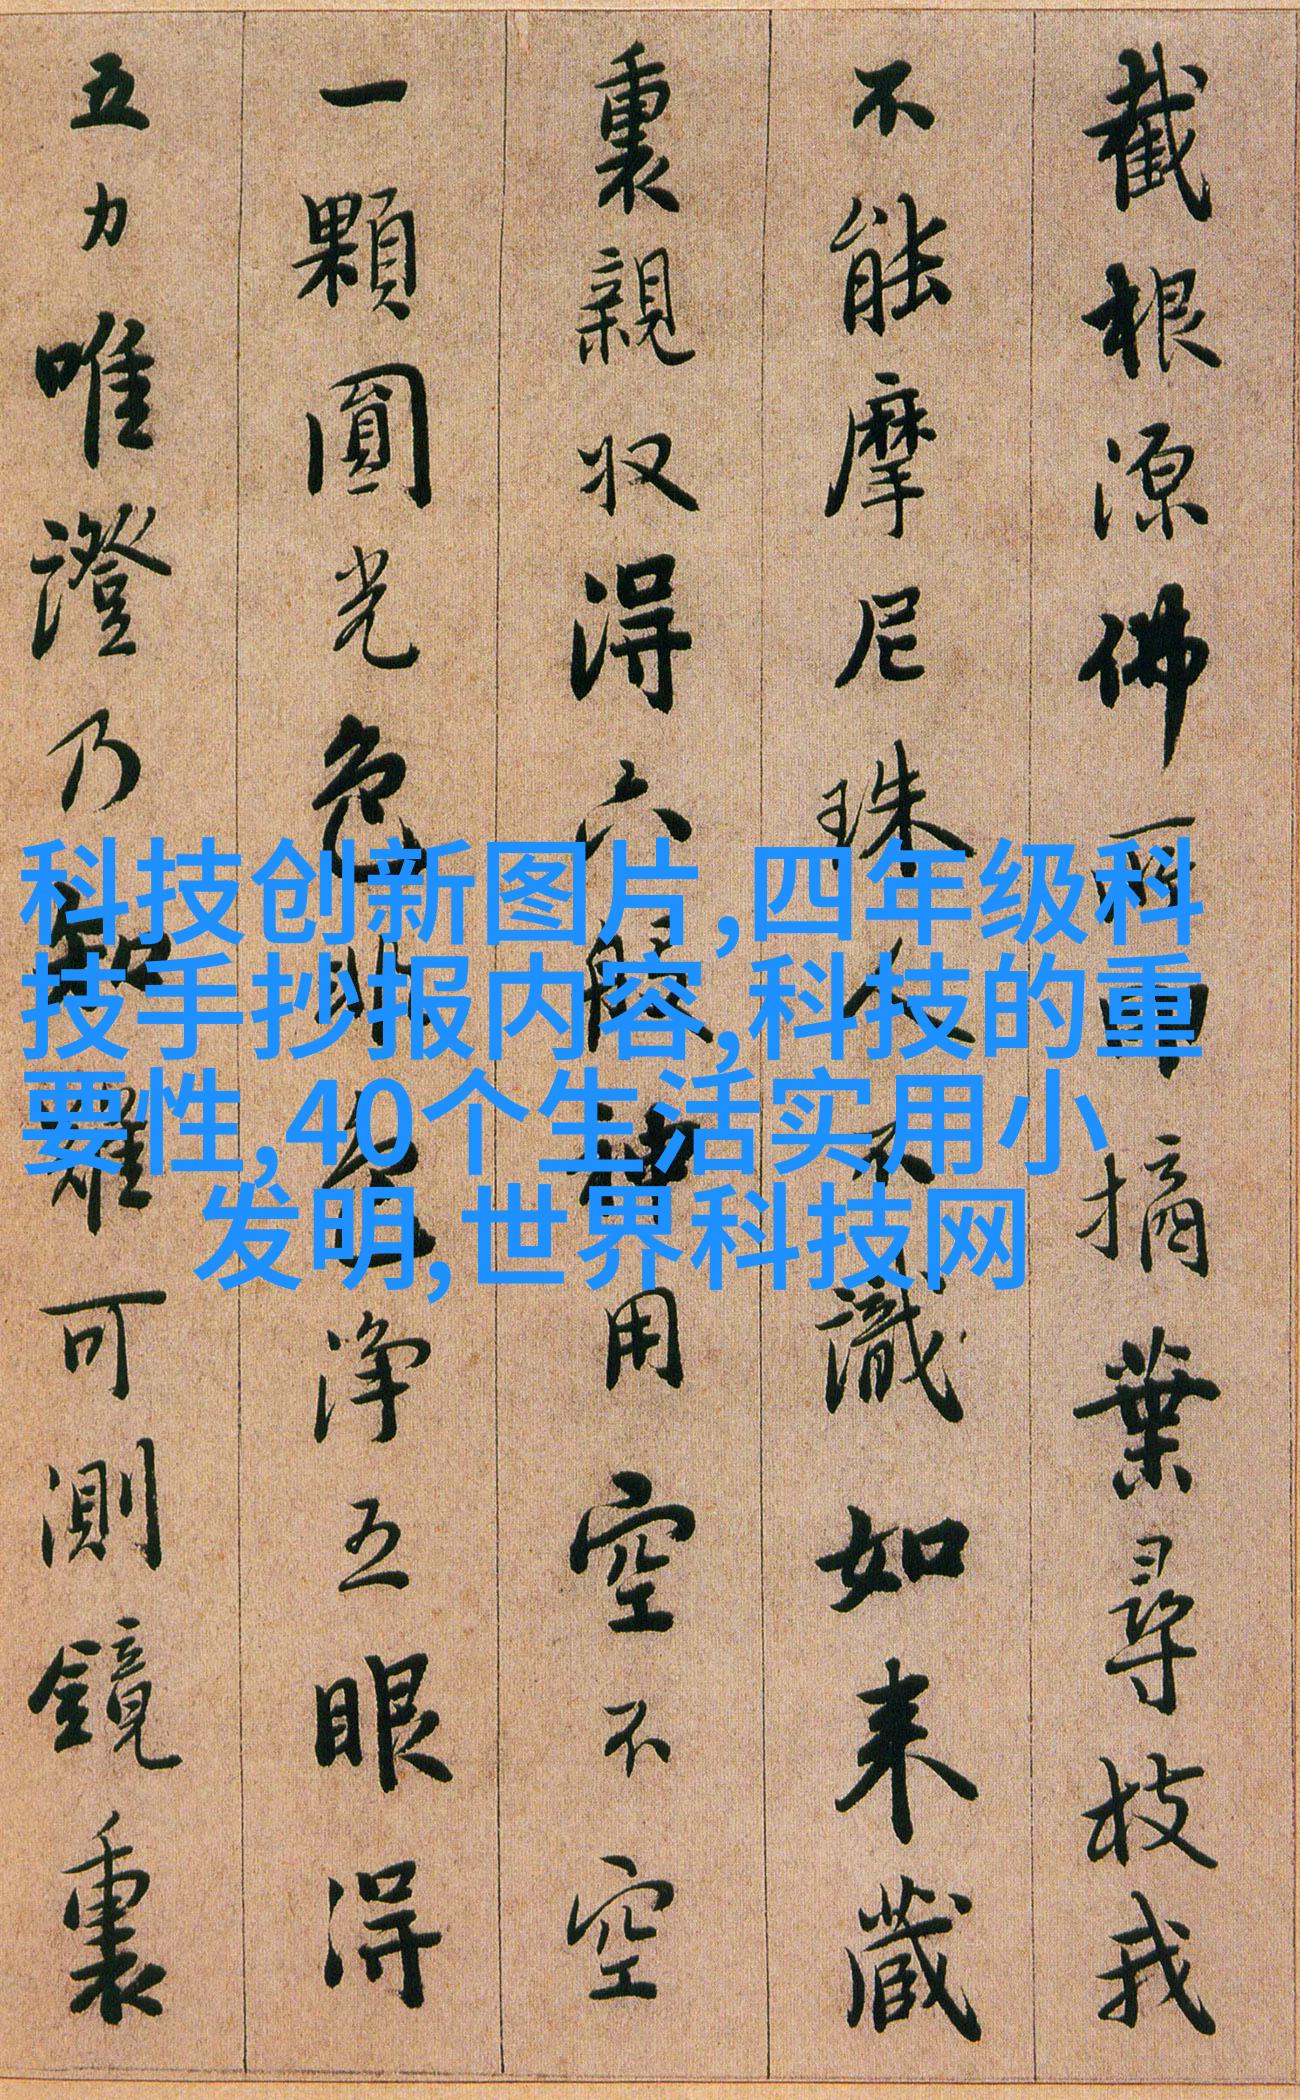 截根源佛所印摘葉尋枝我
不能摩尼珠人不識如来藏
裏親収得六般神用空不空
一顆圓光色非色淨五眼得
五力唯證乃知難可測鏡裏
科技创新图片,四年级科
技手抄报内容,科技的重
要性,40个生活实用小
发明,世界科技网